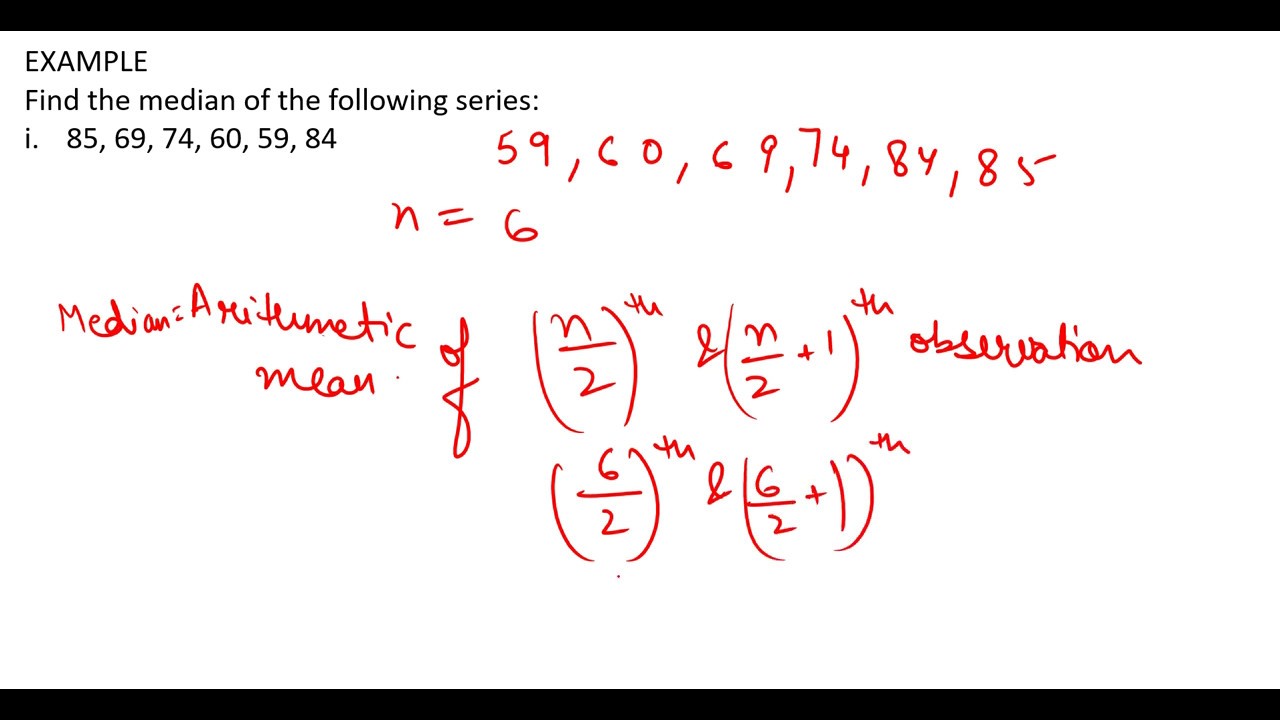 EXAMPLE
Find the median of the following series:
i. 85, 69, 74, 60, 59, 84
59, 60, 69, 74, 84, 85
n = 6
Median = Aritemetic mean of (n/2)th & (n/2 + 1)th observation
(6/2)th & (6/2 + 1)th